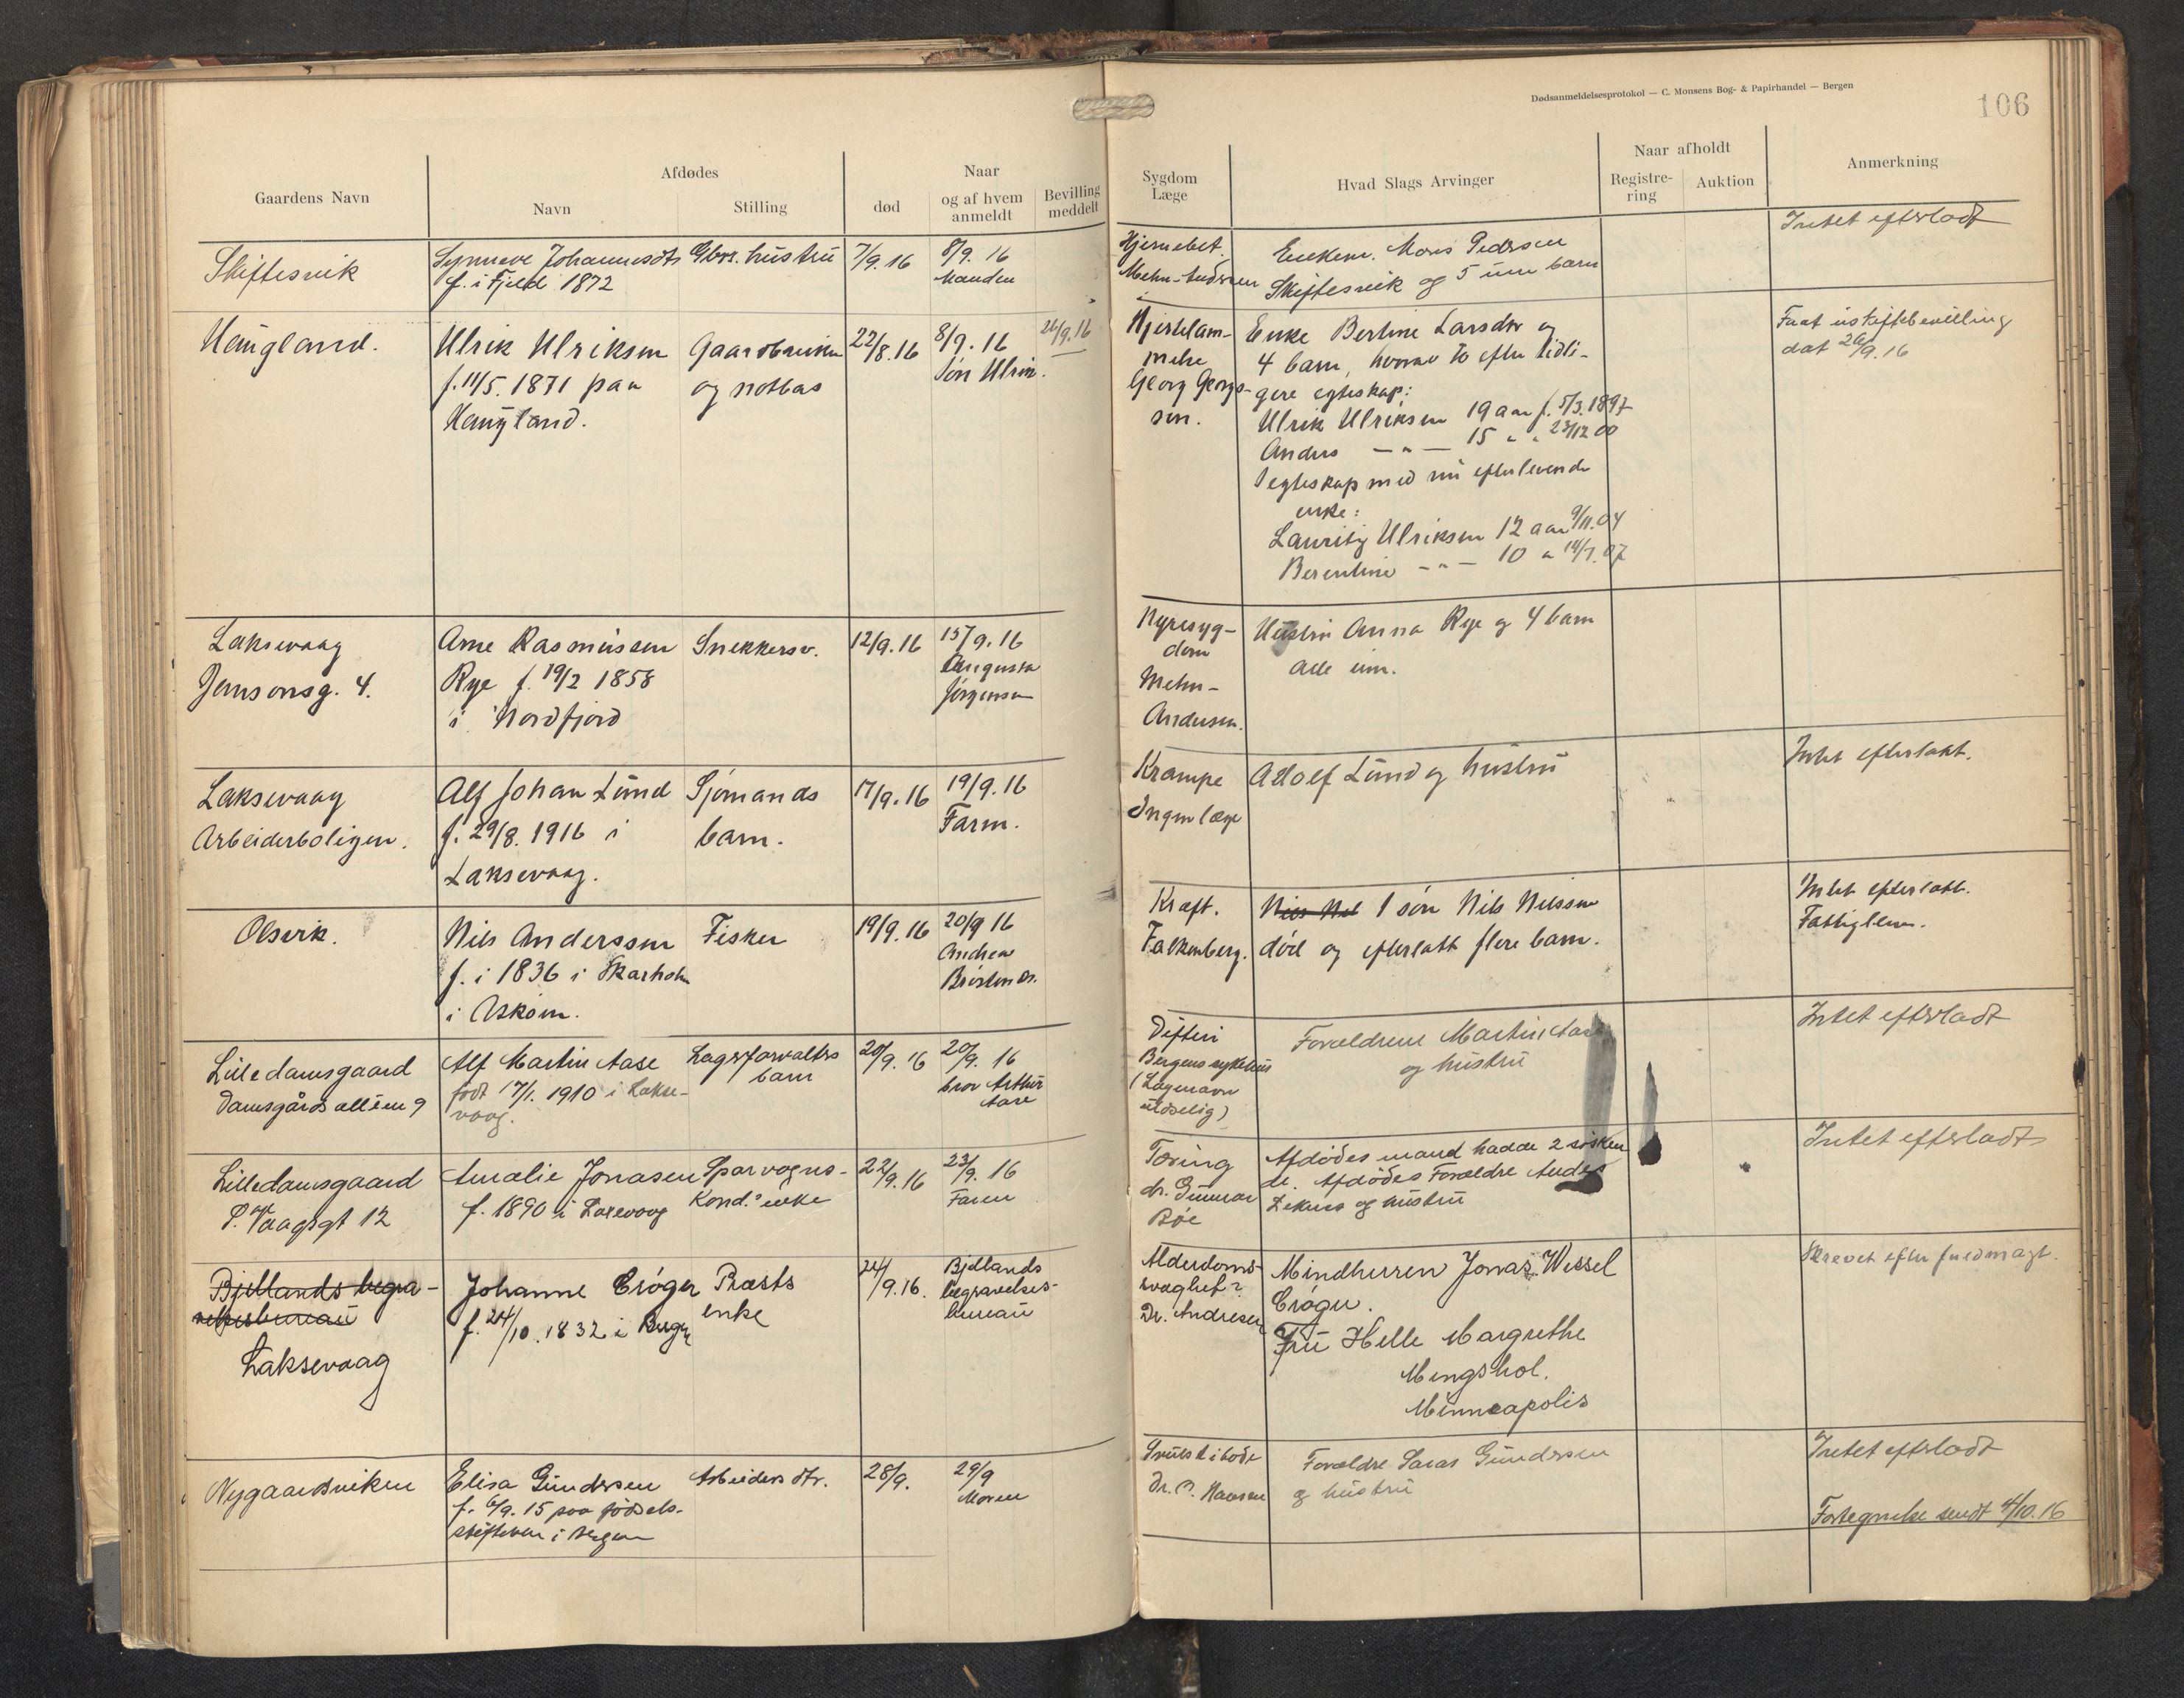 Dødsanmeldelsesprotokol — C. Monsens Bog- & Papirhandel — Bergen
106
Gaardens Navn
Afdødes
Navn
Stilling
Naar
død
og af hvem
anmeldt
Bevilling
meddelt
Sygdom
Læge
Hvad Slags Arvinger
Naar afholdt
Registre-
ring
Auktion
Anmerkning
Skiftesvik
Synneve Johannesdtr
f. i Fjeld 1872
Gbrs. hustru
7/9. 16
8/9. 16
Manden
Hjernebet.
Mehn-Andersen
Enkem. Mons Pedersen
Skiftesvik og 5 um barn
Intet efterladt
Haugland.
Ulrik Ulriksen
f. 11/5. 1871 paa
Haugland.
Gaardbruker
og notbas
22/8. 16
8/9. 16
Søn Ulrik.
26/9. 16
Hjertelam-
melse
Georg Georgs-
sen.
Enke Bertine Larsdtr og
4 barn, hvorav to efter tidli-
gere egteskap:
Ulrik Ulriksen 19 aar f. 5/3. 1897
Anders — " — 15 " " 23/12 00
I egteskap med nu efterlevende
enke:
Lauritz Ulriksen 12 aar 9/11. 04
Berentine - " - 10 " 14/7. 07
Faat uskiftebevilling
dat 26/9. 16
Laksevaag
Jansonsg. 4.
Arne Rasmussen
Rye f. 19/2 1858
i Nordfjord
Snekkersv.
12/9. 16
15/9. 16
Augusta
Jørgensen
Nyresyg-
dom
Mehn-
Andersen.
Hustru Anna Rye og 4 barn
alle um.
Laksevaag
Arbeiderboligen.
Alf Johan Lund
f. 29/8. 1916 i
Laksevaag.
Sjømands
barn.
17/9. 16
19/9. 16
Farm.
Krampe
Ingen læge
Adolf Lund og hustru
Intet efterlatt.
Olsvik.
Nils Anderssen
f. i 1836 i Skarholm
i Askøin.
Fisker
19/9. 16
20/9 16
Andrea
Kræft.
Falkenberg.
Nils Nel 1 søn Nils Nilssen
død og efterlatt flere barn.
Intet efterlatt.
Fattiglem.
Lille damsgaard
Damsgårds alléen 9
Alf Martin Aase
født 17/1. 1910 i Lakse-
vaag.
Lagerforvalters
barn
20/9. 16
20/9. 16
bror Arthur
Aase
Difteri
Bergens sykehus
(Lægenavn
utydelig)
Forældrene Martin Aase
og hustru
Intet efterladt
Lilledamsgaard
P. Vaagsgt 12
Amalie Jonasen
f. 1890 i Laxevaag
Sporvogns-
Kond.s enke
22/9. 16
23/9. 16
Faren
Tæring
dr. Gunnar
Bøe
Afdødes mand hadde 2 søsken
Afdødes Forældre
og hustru
Intet efterladt
Bjellands begra-
velsesbureau
Laksevaag
Johanne Crøger
f. 24/10. 1832 i Bergen
Præsts
enke
24/9. 16.
Bjellands
begravelses-
bureau
Alderdoms-
svaghet?
Dr. Andresen
Mindherren Jonas Wessel
Crøger.
Fru Helle Margrethe
Mengshol.
Minneapolis
Skrevet efter fuldmagt.
Nygaardsviken
Elisa Gundersen
f. 6/9. 15 paa fødsels-
stiftelsen i Bergen
Arbeiders dtr.
28/9.
29/9
Moren
Forældre Gundersen
og hustru
Intet efterladt
Fortegnelse sendt 4/10. 16